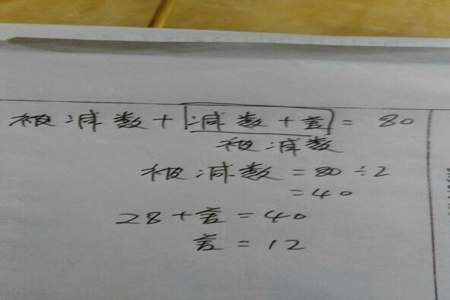 被减数+减数+差=80
被减数
被减数=80÷2
=40
28+差=40
差=12